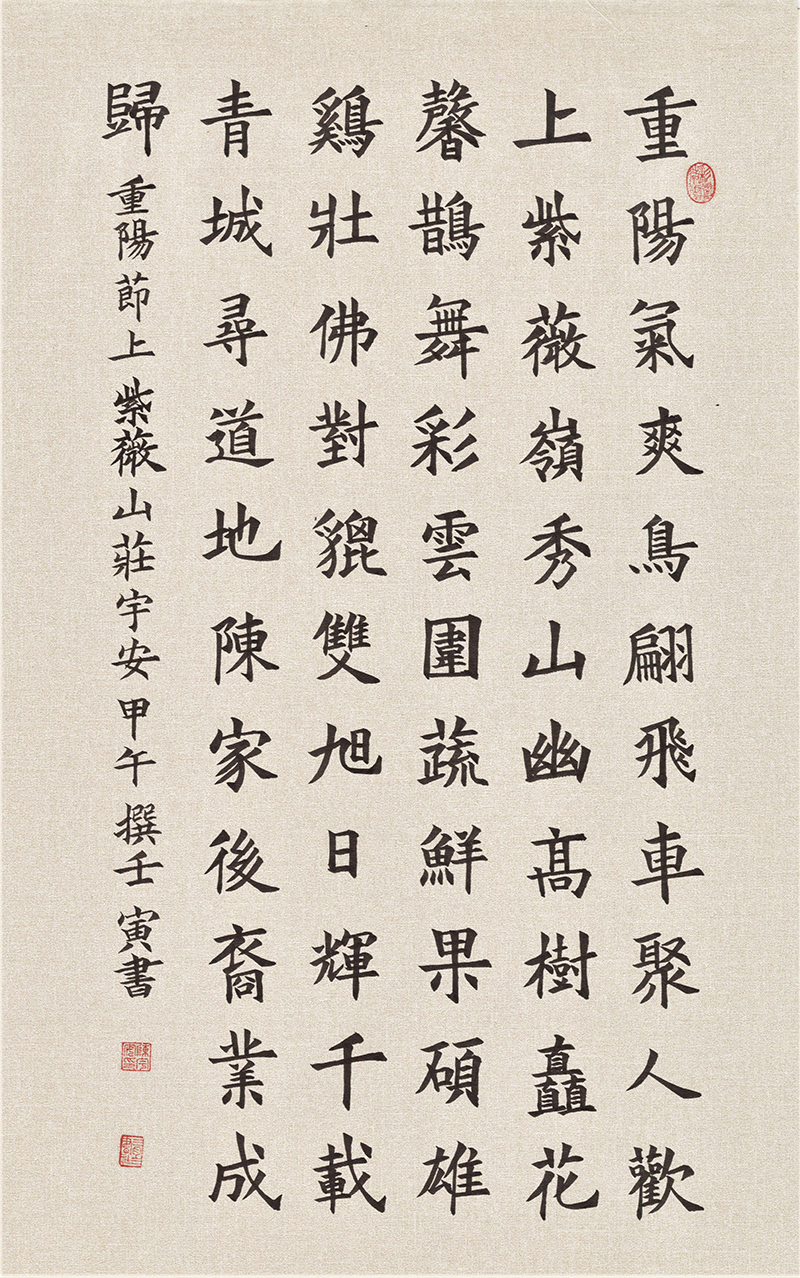 重陽氣爽鳥翩飛車聚人歡
上紫薇嶺秀山幽高樹矗花
馨鵲舞彩雲圍蔬鮮果碩雄
鷄壯佛對貔雙旭日輝千載
青城尋道地陳家後裔業成
歸重陽節上紫薇山莊宇安甲午撰壬寅書